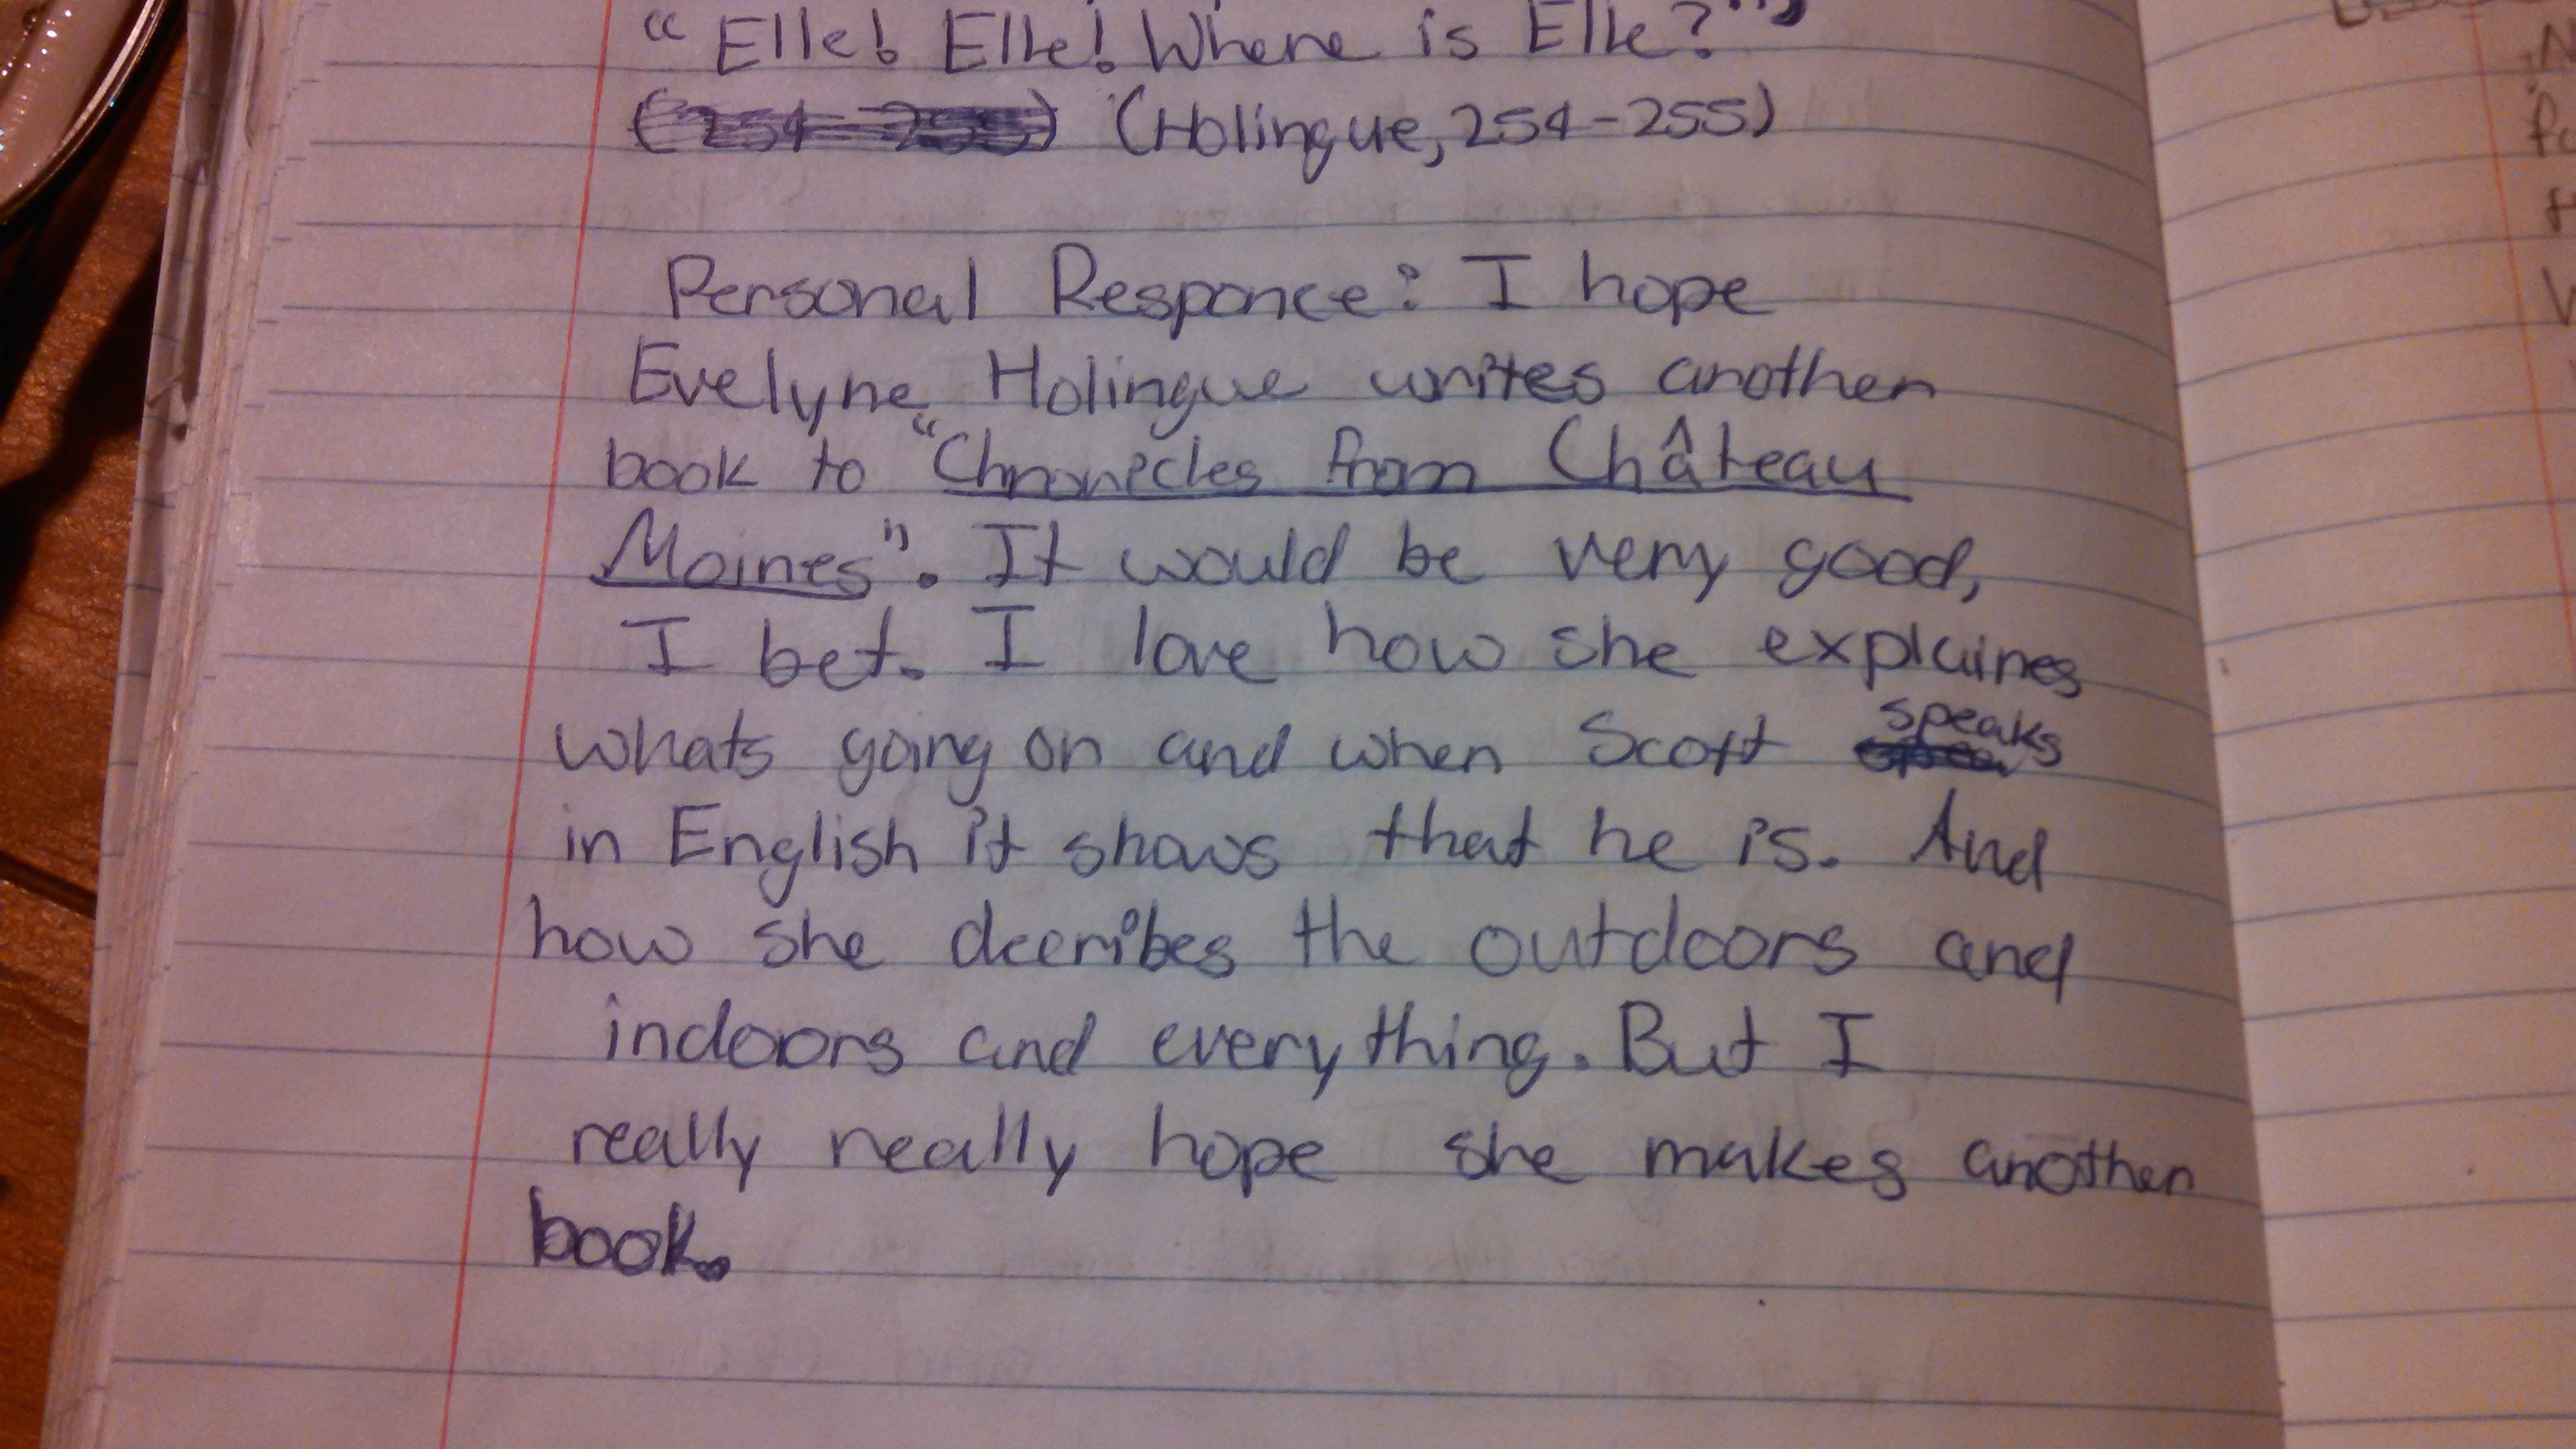 “Elle! Elle! Where is Elle?”
(254-255) (Holingue, 254-255)
Personal Responce: I hope
Evelyne Holingue writes another
book to “Chronicles from Château
Moines”. It would be very good,
I bet. I love how she explaines
whats going on and when Scott speaks
in English it shows that he is. And
how she decribes the outdoors and
indoors and everything. But I
really really hope she makes another
book.